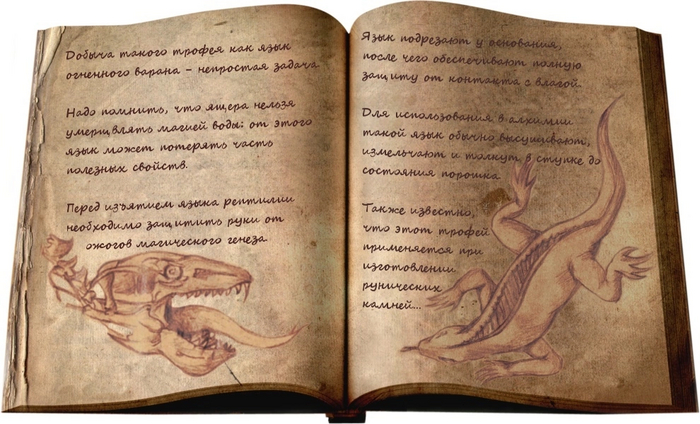 Добыча такого трофея как язык
огненного варана – непростая задача.
Надо помнить, что ящера нельзя
умерщвлять магией воды: от этого
язык может потерять часть
полезных свойств.
Перед изъятием языка рептилии
необходимо защитить руки от
ожогов магического генеза
Язык подрезают у основания,
после чего обеспечивают полную
защиту от контакта с влагой.
Для использования в алхимии
такой язык обычно высушивают,
измельчают и толкут в ступке до
состояния порошка
Также известно,
что этот трофей
применяется при
изготовлении
рунических
камней...